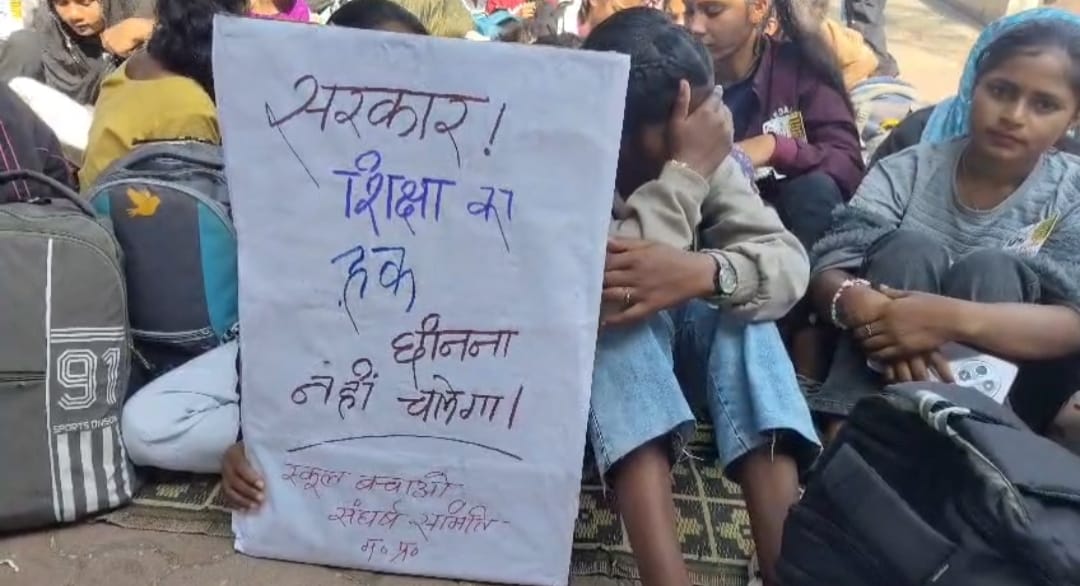 सरकार!
शिक्षा का
हक
छीनना
नहीं चलेगा।
स्कूल बचाओ
संघर्ष समिति-
म॰ प्र॰
91
SPORTS DIVISION